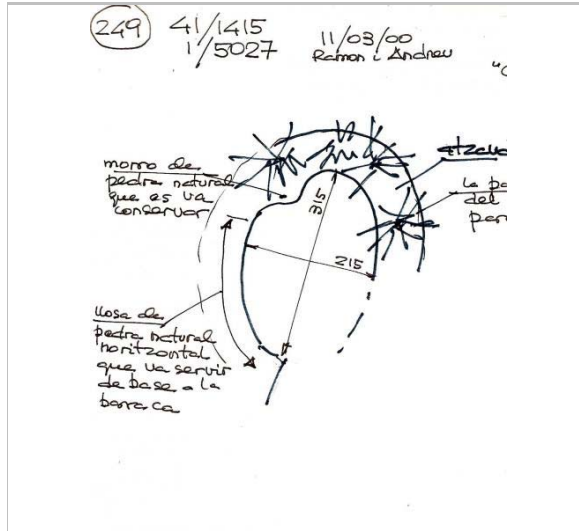 249
41/1415
1/5027
11/03/00
Ramon i Andreu
morro de
pedra natural
que es va
conservar
315
215
la pa
del
par
llosa de
pedra natural
horitzontal
que va servir
de base a la
barraca